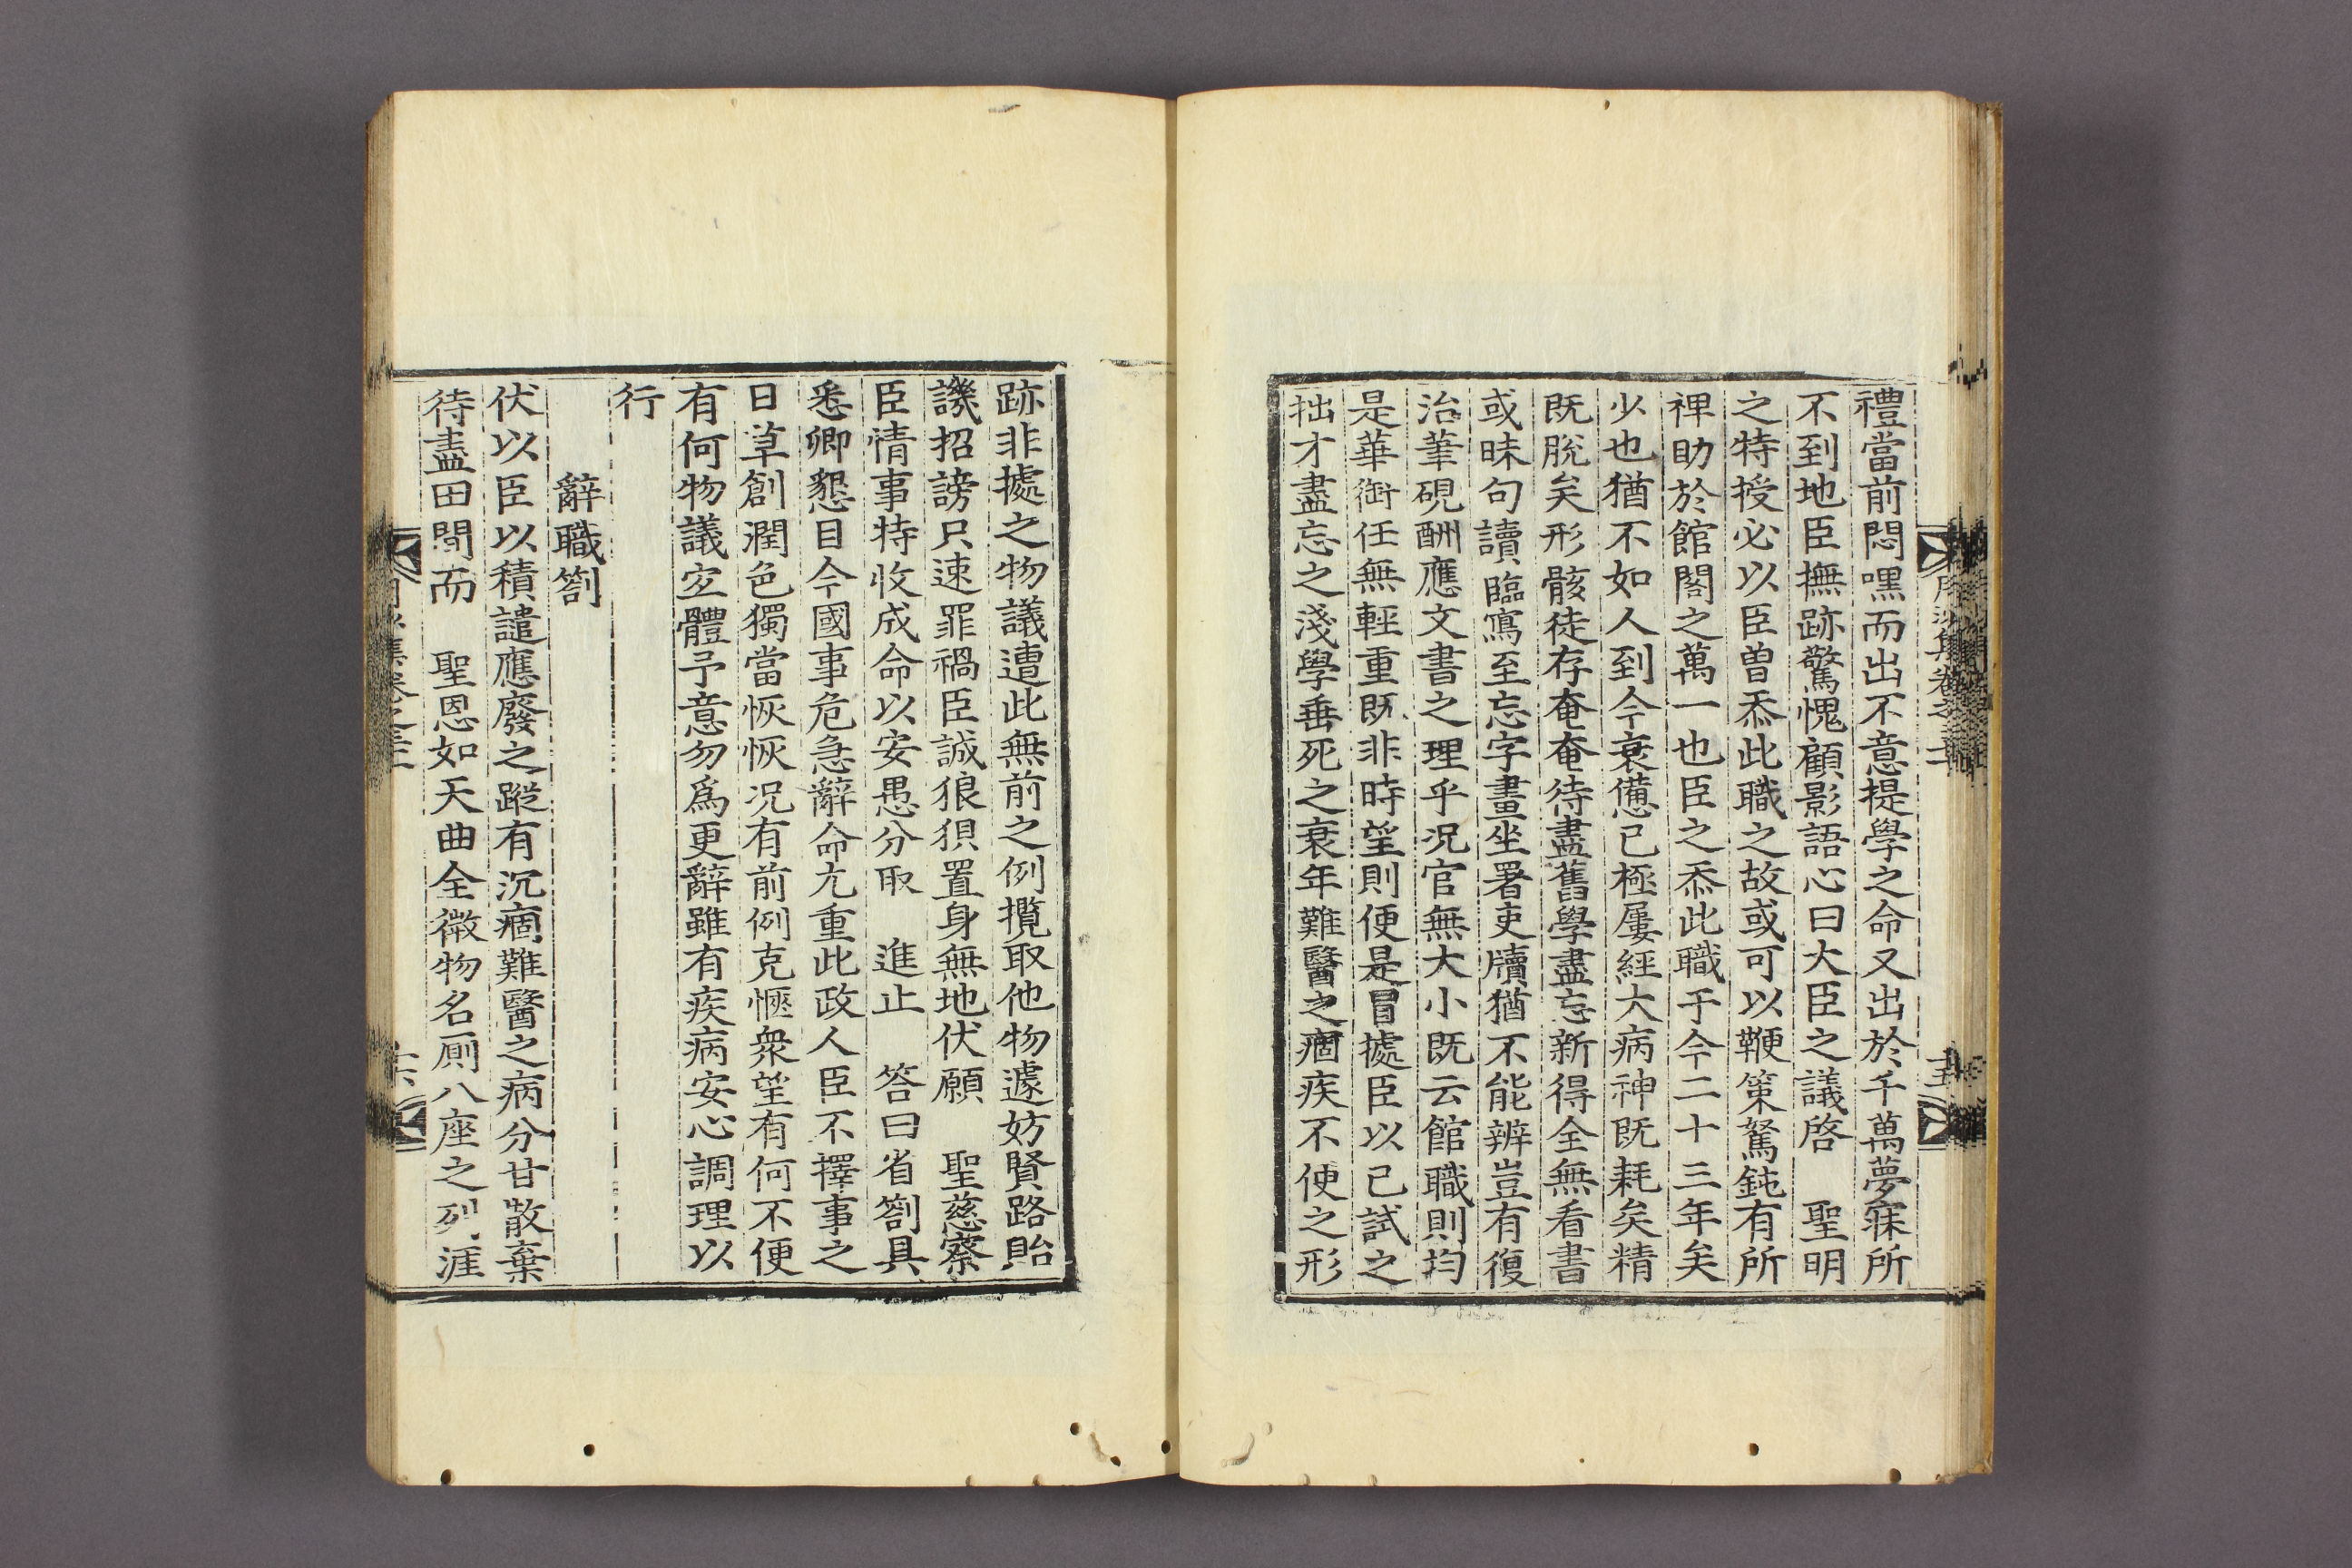 禮當前悶嘿而出不意提學之命又出於千萬夢寐所
不到地臣撫跡驚愧顧影語心曰大臣之議啓 聖明
之特授必以臣曾忝此職之故或可以鞭策駑鈍有所
裨助於館閣之萬一也臣之忝此職于今二十三年矣
少也猶不如人到今衰憊已極屢經大病神旣耗矣精
旣脫矣形骸徒存奄奄待盡舊學盡忘新得全無看書
或昧句讀臨寫至忘字畫坐署吏牘猶不能辨豈有復
治筆硯酬應文書之理乎况官無大小旣云館職則均
是華衘任無輕重旣非時望則便是冒據臣以已試之
拙才盡忘之淺學垂死之衰年難醫之痼疾不便之形
跡非據之物議遭此無前之例攬取他物遽妨賢路貽
譏招謗只速罪禍臣誠狼狽置身無地伏願 聖慈察
臣情事特收成命以安愚分取 進止 答曰省劄具
悉卿懇目今國事危急辭命尤重此政人臣不擇事之
日草創潤色獨當恢恢况有前例克愜衆望有何不便
有何物議宜體予意勿爲更辭雖有疾病安心調理以
行
辭職劄
伏以臣以積譴應廢之蹤有沉痼難醫之病分甘散棄
待盡田間而 聖恩如天曲全微物名厠八座之列涯
月沙集卷之三十
十五
十六